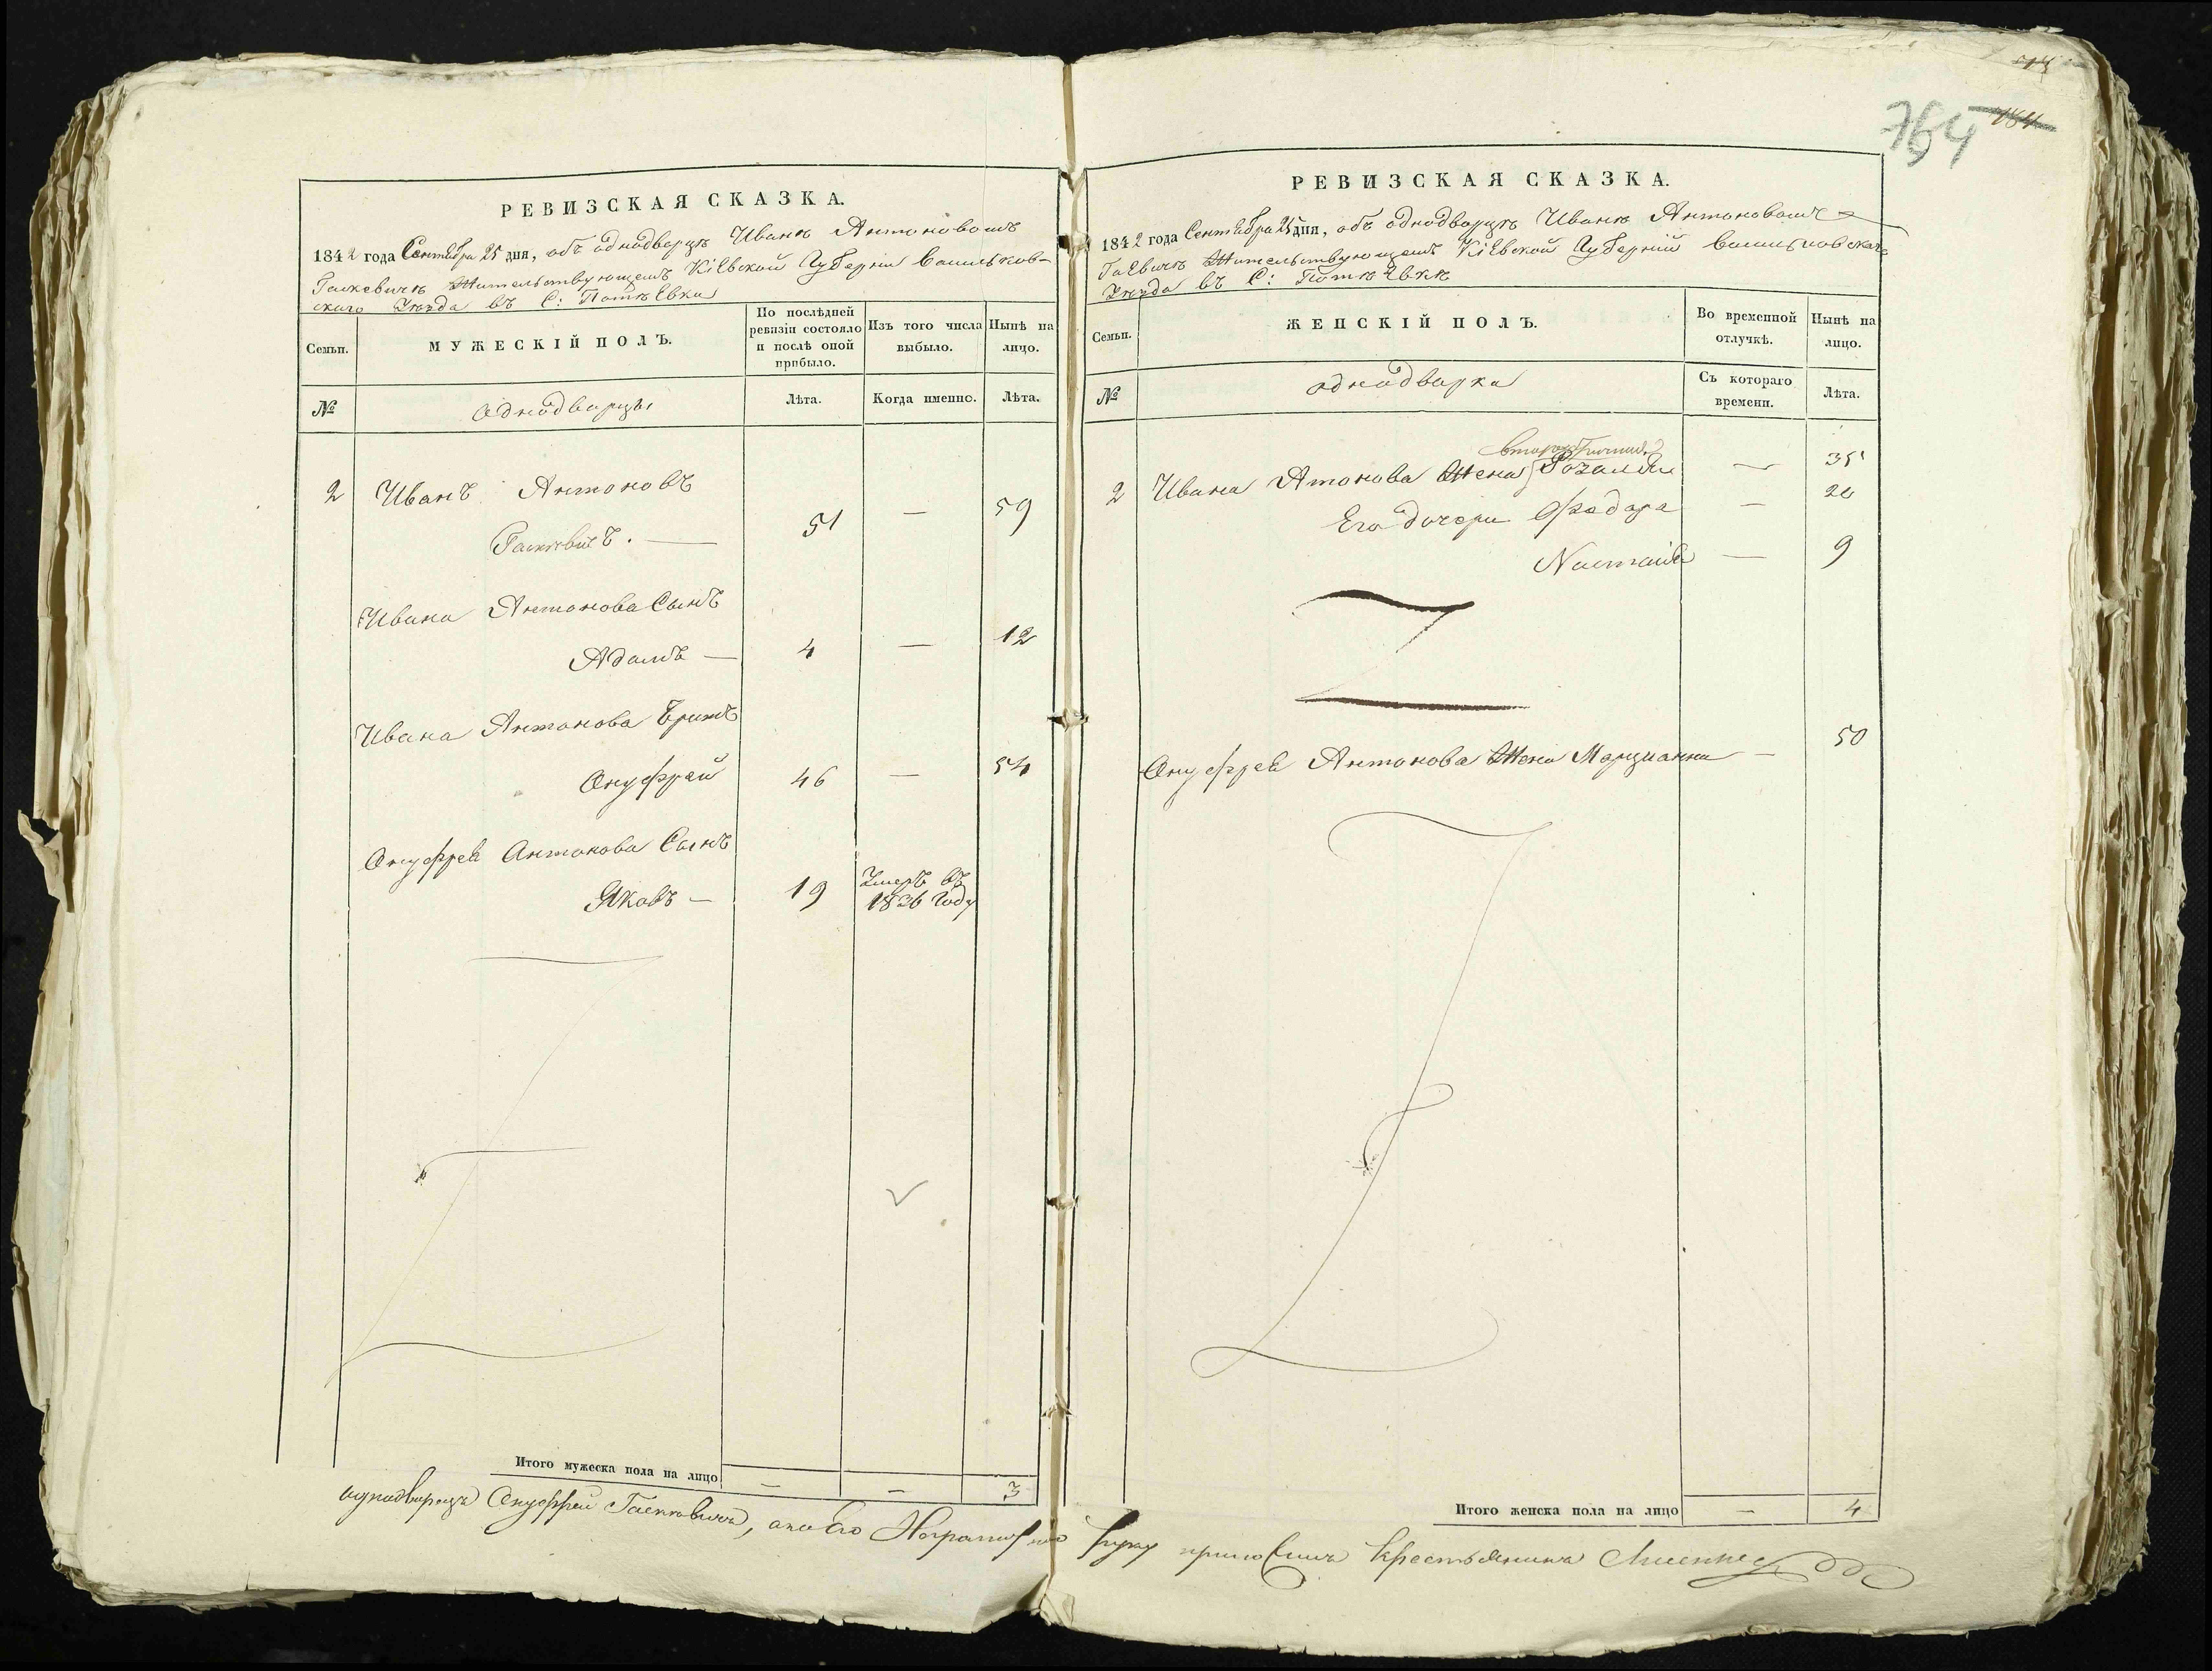 РЕВИЗСКАЯ СКАЗКА.
1842 года Сентября 25 дня, объ однодворцѣ Иванѣ Антоновомъ
Гаскевичѣ Жительствующемъ Кіевской Губерніи Васильков-
скаго Уѣзда въ С:
Семьи.
МУЖЕСКІЙ ПОЛЪ.
По послѣдней ревизіи состояло и послѣ оной прибыло.
Изъ того числа выбыло.
Нынѣ на лицо.
№
Однодворцы
Лѣта.
Когда именно.
Лѣта.
2 Иванъ Антоновъ
51 — 59
Ивана Антонова Сынъ
Адамъ — 4 — 12
Ивана Антонова Братъ
Онуфрей 46 — 54
Онуфрея Антонова Сынъ
Яковъ — 19 Умеръ въ 1836 году
Итого мужеска пола на лицо — — 3
однодворецъ Онуфрей руку приложилъ Крестьянинъ
764
184
РЕВИЗСКАЯ СКАЗКА.
1842 года Сентября 25 дня, объ однодворцѣ Иванѣ Антоновомъ
Жительствующемъ Кіевской Губерніи Васильковскаго
Уѣзда въ С:
Семьи.
ЖЕНСКІЙ ПОЛЪ.
Во временной отлучкѣ.
Нынѣ на лицо.
№
однодворки
Съ котораго времени.
Лѣта.
2 Ивана Антонова Жена Розалія — 35
Его дочери Федора — 20
Настасія — 9
Онуфрея Антонова Жена Марцианна — 50
Итого женска пола на лицо — 4